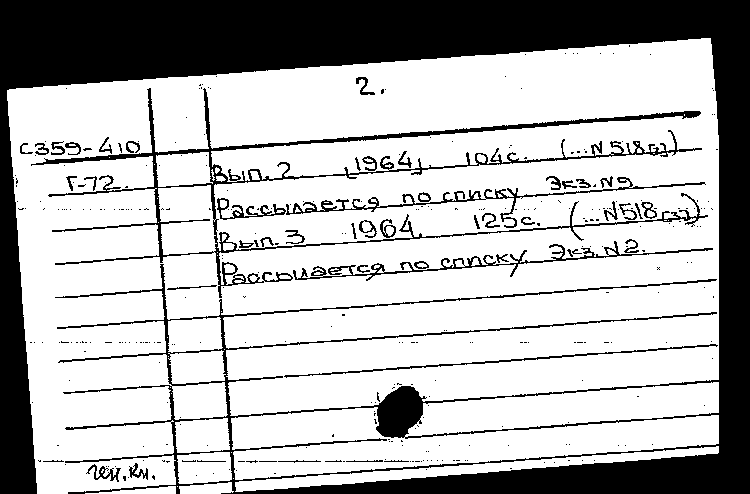 2.
С359-410
Вып. 2 [1964]. 104с. (...N518
Г-72.
Рассылается по списку Экз.N9.
Вып. 3 1964. 125с. (...N518
Рассылается по списку. Экз.N2.
ген.кл.